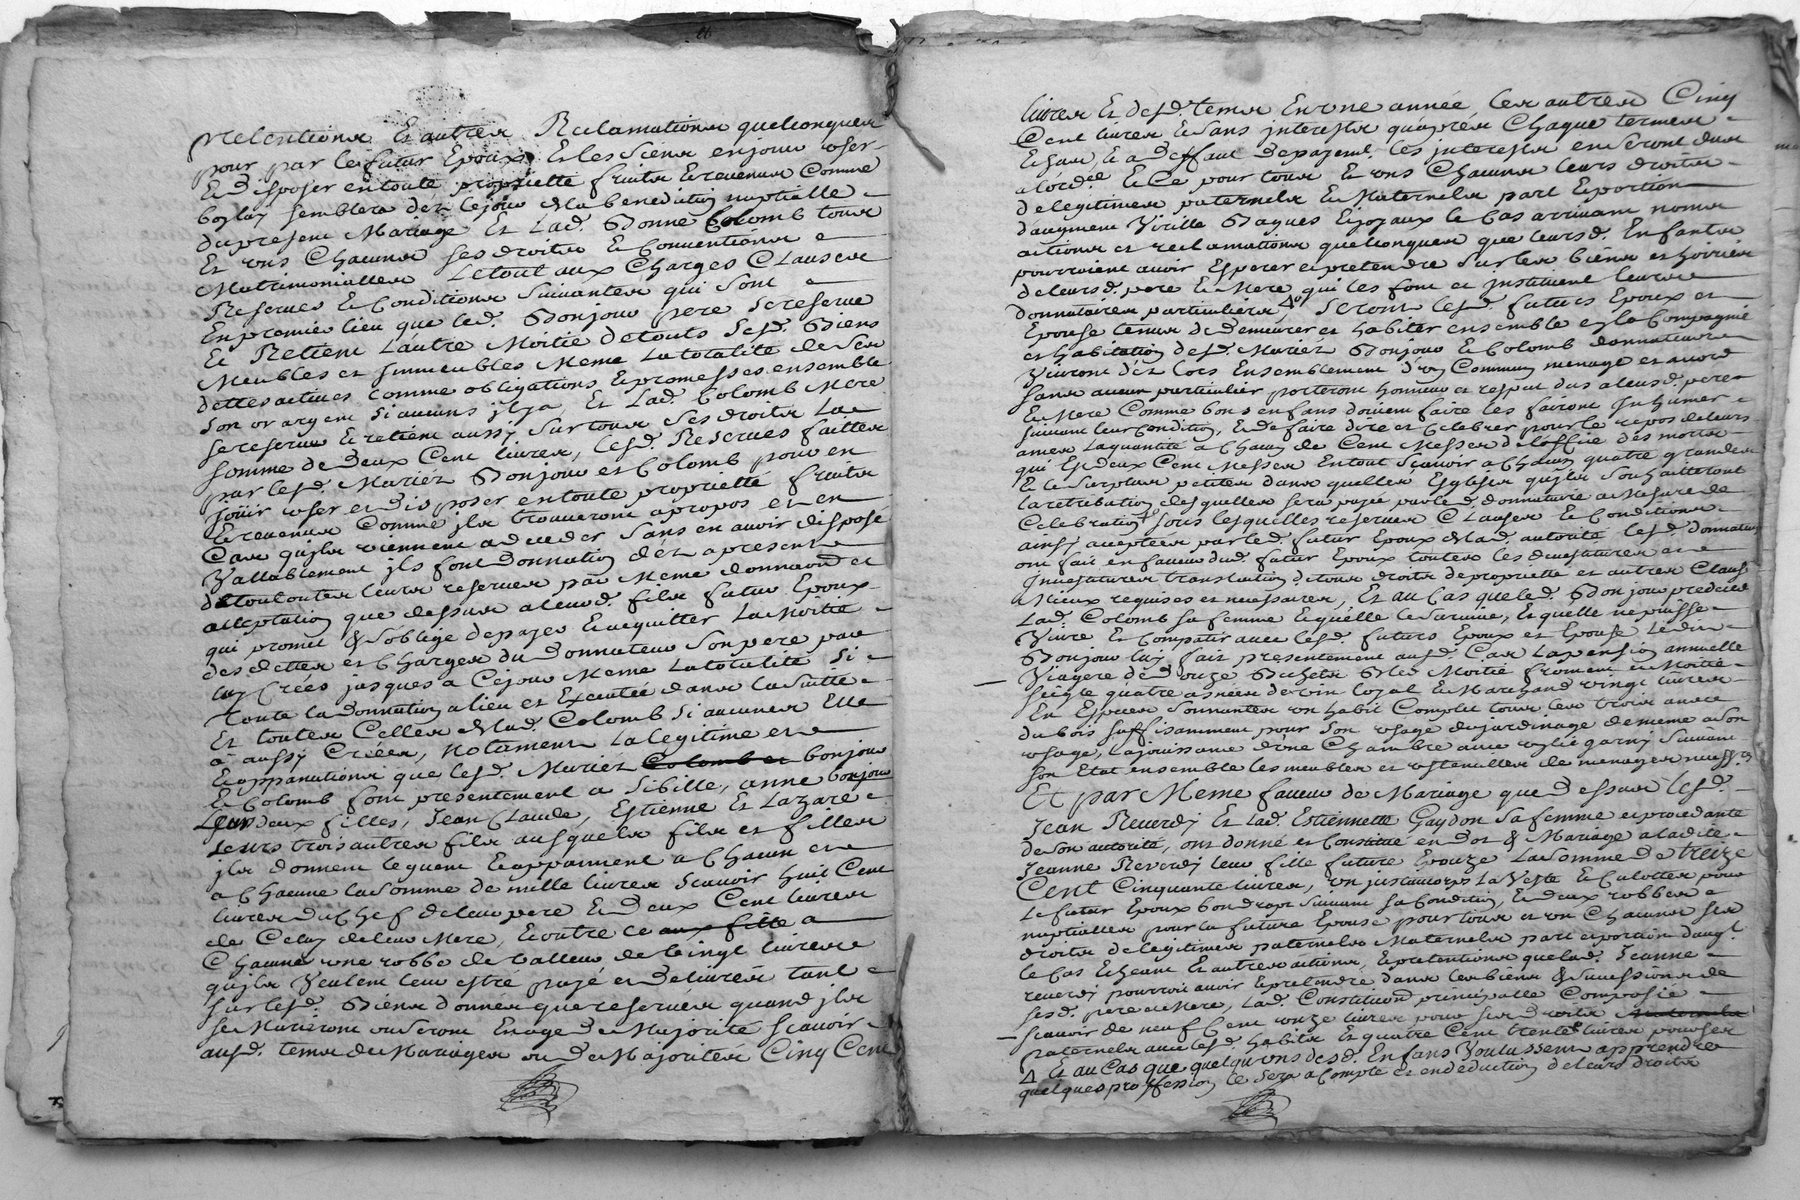 pretentions Et autres Reclamations quelconques
pour par le futur Epoux Et les Siens en jouir user
Et disposer en toute proprieté fruits Et revenus Comme
bon luy semblera déz le jour de la benediction nuptialle
du present Mariage Et Lad. Donne Colomb tous
Et uns Chacuns ses droits Et Conventions
Matrimonialles Le tout aux Charges Clauses
Reserves Et Conditions suivantes qui sont
En premier lieu que led. Bonjour pere se reserve
Et Retient Lautre Moitié de touts sesd. Biens
Meubles et immeubles Meme La totalité de ses
dettes actives Comme obligations Et promesses ensemble
son or argent si aucuns il y a, Et Lad. Colomb Mere
se reserve Et retient aussy sur tous ses droits La
somme de deux Cent livres, lesd. Reserves faittes
par lesd. Mariéz Bonjour et Colomb pour en
joüir user et disposer en toute proprieté fruits
Et revenus Comme ils trouveront a propos et en
Cas qu'ils viennent a deceder sans en avoir disposé
Vallablement ils font donnation déz a present
de toutes leurs reserves par Meme donnaon et
acceptation que dessus a leurd. fils futur Epoux
qui promet & s'oblige de payer Et acquitter La Moitié
des dettes et Charges du donnateur son pere par
luy Crées jusques a Ce jour Meme La totalité si
toute la donnation a lieu et Executée dans la suitte
Et toutes Celles de lad. Colomb si aucunes Elle
a aussy Créés, Notament La legitime et
Et appanations que lesd. Mariéz Colomb et bonjour
Et Colomb font presentement a Sibille, anne bonjour
Leurs deux filles, Jean Claude, Estienne Et Lazare
leurs trois autres fils ausquels fils et filles
ils donnent leguent Et appanent a Chacun et
a Chacune La somme de mille livres sçavoir huit Cent
livres du Chef de leur pere Et deux Cent livres
de Celuy de leur Mere, Et outre ce aux fille a
Chacune une robbe de valleur de Vingt livres
qu'ils Veulent leur estre payé et delivrés tant
sur lesd. Biens donnés que reserves quand ils
se Marieront ou seront En age de Majorité sçavoir
ausd. tems de Mariages ou de Majorités Cinq Cent
livres Et desd. tems En une année les autres Cinq
Cent livres Et sans interests qu'aprés Chaque termes
Echus, Et a deffaut de payemt. les interests en seront dus
a l'ordce. Et Ce pour tous Et uns Chacuns leurs droits
de legitimes paternels Et Maternels part Et portion
d'augment Virille Bagues Et joyaux le Cas arrivant noms
actions et reclamations quelconques que leursd. Enfants
pourroient avoir Esperer et pretendre sur les biens et hoiries
de leursd. pere Et Mere qui les font et instituent leurs
donnataires particuliers, Δ seront lesd. futurs Epoux et
Epouse tenus de demeurer et habiter ensemble en la Compagnie
et habitation desd. Mariéz Bonjour Et Colomb donnateurs
Vivront déz lors Ensemblement d'un Commun menage et avoir
sans aucun particulier porteront honneur et respect dus a leursd. pere
Et Mere Comme bons enfans doivent faire les fairont Inhumer
suivant leur Condition, Et de faire dire et Celebrer pour le repos de leurs
ames La quantité a Chacun de Cent Messes de loffice des morts
qui Est deux Cent Messes En tout sçavoir a Chacun quatre grandes
Et le surplus petites dans quelles Eglises qu'ils souhaitteront
la retribution desquelles sera payée par led. donnataire a Mesure de
Celebration, sous lesquelles reserves Clauses Et Conditions
ainsy acceptées par led. futur Epoux de lad. autorité lesd. donnateurs
ont fait en faveur dud. futur Epoux toutes les devestitures et
Investitures translation de tous droits de proprieté et autres Clauses
Mieux requises et necessaires, Et au Cas que led. Bonjour predecede
Lad. Colomb sa femme Et qu'elle le survive, Et quelle ne puisse
Vivre Et Compatir avec lesd. futurs Epoux et Epouse Ledit
Bonjour luy fait presentement aud. Cas La pension annuelle
Viagere de douze Bichets Bléz Moitié froment et Moitié
seigle quatre asnées de vin loyal Et Marchand vingt livres
En Especes sonnantes un habit Complet tous les trois ans
du bois suffisamment pour son usage de jardinage de meme a son
usage, La jouissance d'une Chambre avec un lit garni suivant
son Etat ensemble les meubles et ustencilles de menages necessres.
Et par Meme faveur de Mariage que dessus lesd.
Jean Reverdy Et Lad. Estiennette Gaydon sa femme et procedante
de son autorité, ont donné et Constitué en dot & Mariage a ladite
Jeanne Reverdy leur fille future Epouze La somme de treize
Cent Cinquante livres, un justaucorps La Veste Et Culottes pour
Le futur Epoux bon drap suivant sa Condition, Et deux robbes
nuptialles pour la future Epouse pour tous et un Chacuns ses
droits de legitimes paternels Maternels part et portion d'augt.
le Cas Echeant Et autres actions, Et pretentions que lad. Jeanne
reverdy pourroit avoir Et pretendre dans les biens & successions de
sesd. pere et Mere, Lad. Constitution principalle Composée
sçavoir de neuf Cent onze livres pour ses droits
paternels avec lesd. habits Et quatre Cent trente livres pour ses
Δ Et au Cas que quelqu'uns desd. Enfans Voulussent apprendre
quelques proffession Ce sera a Compte et en deduction de leurs droits